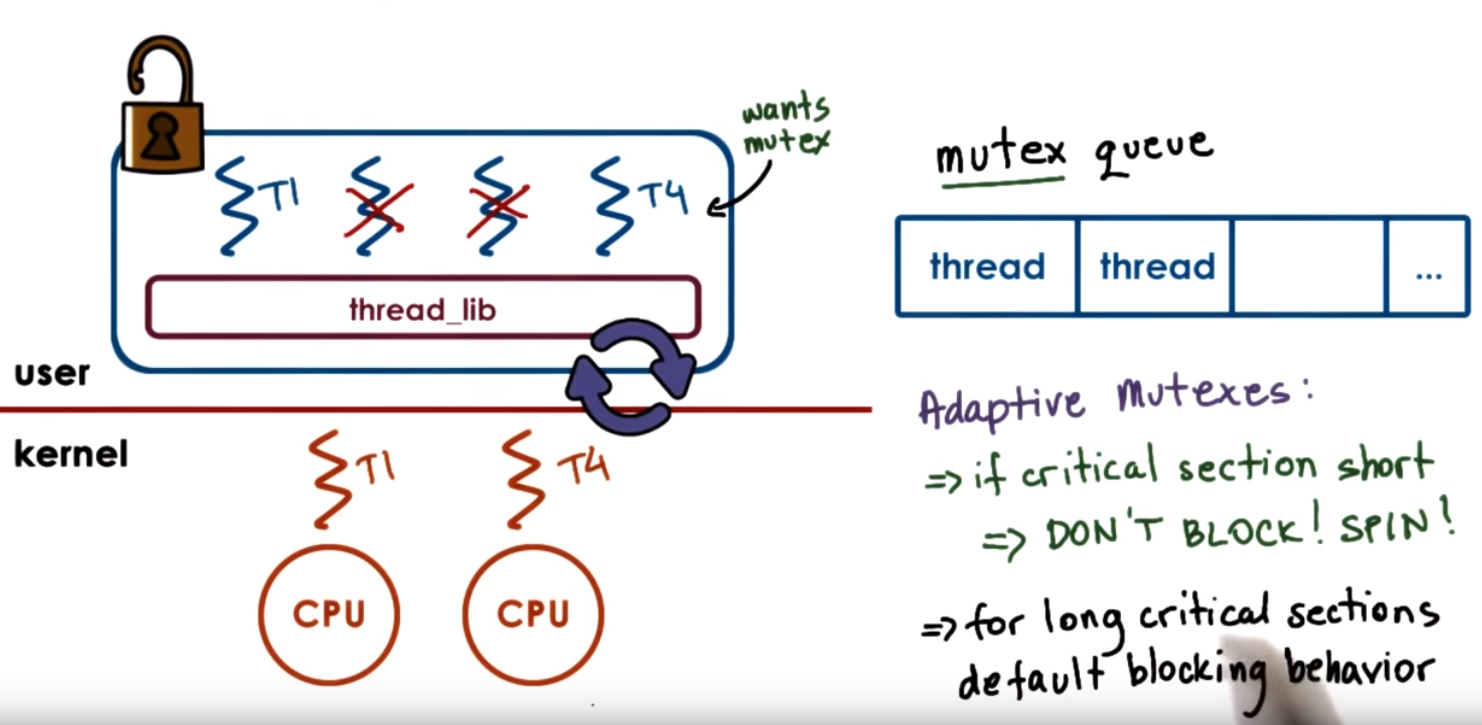 wants
mutex
T1
T4
thread_lib
user
kernel
T1
T4
CPU
CPU
mutex queue
thread
thread
...
Adaptive Mutexes:
=> if critical section short
=> DON'T BLOCK! SPIN!
=> for long critical sections
default blocking behavior